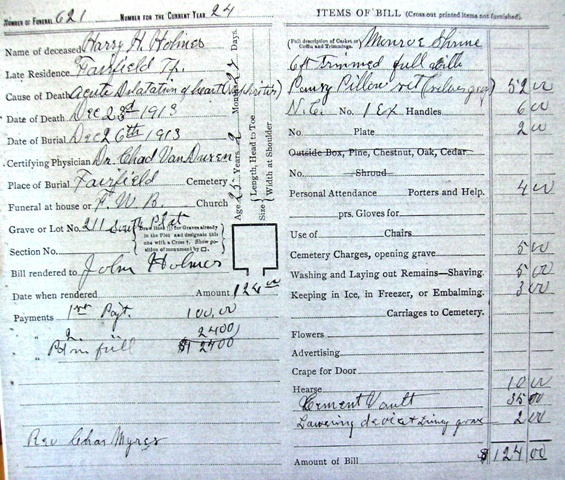 Number of Funeral 621 Number for the Current Year 24
Name of deceased Harry H. Holmes
Late Residence Fairfield Tp.
Cause of Death Acute Dilatation of heart
Date of Death Dec 23d 1913
Date of Burial Dec 26th 1913
Certifying Physician Dr. Chad Van Dusen
Place of Burial Fairfield Cemetery
Funeral at house or P. W. B. Church
Grave or Lot No. 211 South Plat
Section No.
Bill rendered to John Holmes
Date when rendered Amount 124 00
Payments 1st Payt. 100.00
" 2 2400
" Pd in full $12400
Rev Chas Myres
Age Years Months Days.
Length, Head to Toe
Size Width at Shoulder
ITEMS OF BILL (Cross out printed items not furnished).
(Full description of Casket or Coffin and Trimmings. Monroe Shrine
6ft Trimmed full
Pansy Pillow set 52 00
N.C. No. 1 Ex Handles 6 00
No. Plate 2 00
Outside Box, Pine, Chestnut, Oak, Cedar
No. Shroud
Personal Attendance Porters and Help. 4 00
prs. Gloves for
Use of Chairs
Cemetery Charges, opening grave 5 00
Washing and Laying out Remains—Shaving. 5 00
Keeping in Ice, in Freezer, or Embalming. 3 00
Carriages to Cemetery.
Flowers
Advertising
Crape for Door
Hearse 10 00
Cement Vault 35 00
Lowering device & Lining grave 2 00
Amount of Bill $124 00